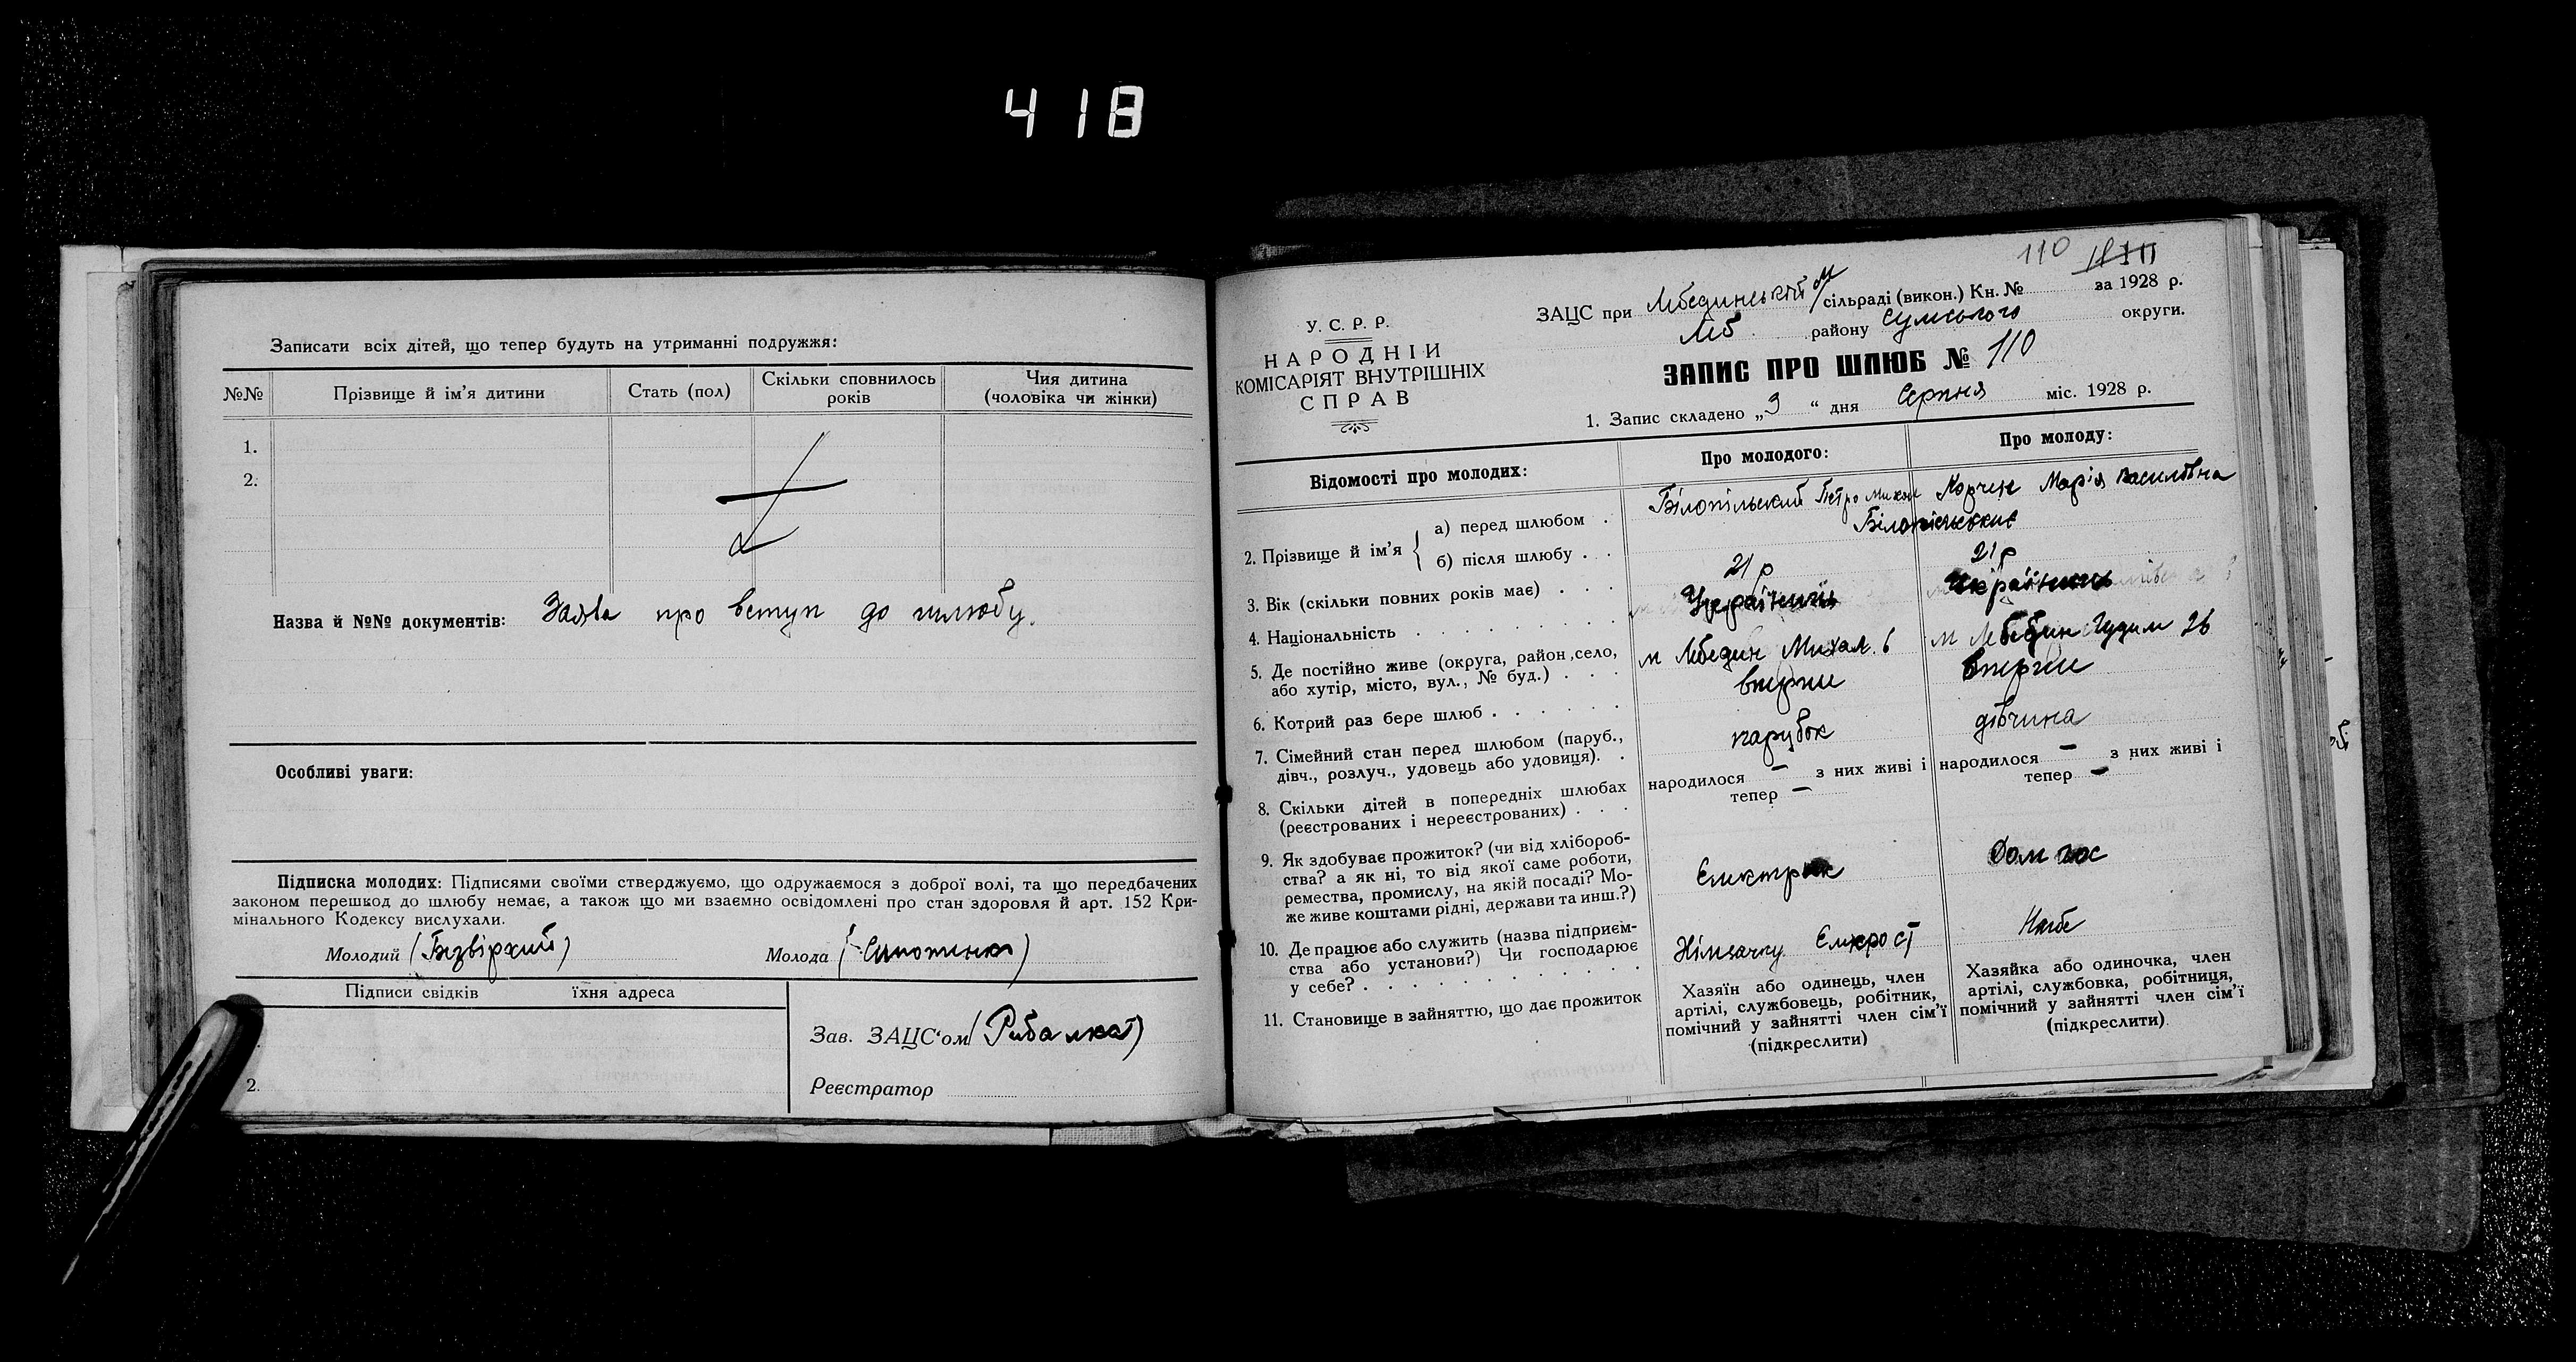 418
Записати всіх дітей, що тепер будуть на утриманні подружжя:
№№ Прізвище й ім'я дитини Стать (пол) Скільки сповнилось років Чия дитина (чоловіка чи жінки)
1.
2.
Назва й №№ документів: Заява про вступ до шлюбу.
Особливі уваги:
Підписка молодих: Підписями своїми стверджуємо, що одружаємося з доброї волі, та що передбачених
законом перешкод до шлюбу немає, а також що ми взаємно освідомлені про стан здоровля й арт. 152 Кри-
мінального Кодексу вислухали.
Молодий (Безвірхий) Молода
Підписи свідків їхня адреса
2.
Зав. ЗАЦС'ом (Рибалка)
Реєстратор
110
У. С. Р. Р.
НАРОДНІЙ
КОМІСАРІЯТ ВНУТРІШНІХ
СПРАВ
ЗАЦС при Лебединській м/сільраді (викон.) Кн. № за 1928 р.
Леб. району Сумського округи.
ЗАПИС ПРО ШЛЮБ № 110
1. Запис складено „9“ дня Серпня міс. 1928 р.
Відомості про молодих: Про молодого: Про молоду:
2. Прізвище й ім'я { а) перед шлюбом . Білопільский Петро Микол Корчен Марія Василівна
б) після шлюбу . . Білопільские
3. Вік (скільки повних років має) . . . 21 р 21 р
4. Національність Українець Українець
5. Де постійно живе (округа, район, село,
або хутір, місто, вул., № буд.) . . . м Лебедин Михал. 6 м Лебедин Гудим 26
6. Котрий раз бере шлюб . . . . . . вперше вперше
7. Сімейний стан перед шлюбом (паруб.,
дівч., розлуч., удовець або удовиця). . парубок дівчина
8. Скільки дітей в попередніх шлюбах
(реєстрованих і нереєстрованих) . . .
народилося — з них живі і
тепер —
народилося — з них живі і
тепер —
9. Як здобуває прожиток? (чи від хлібороб-
ства? а як ні, то від якої саме роботи,
ремества, промислу, на якій посаді? Мо-
же живе коштами рідні, держави та инш.?)
Електрик Дом гос
10. Де працює або служить (назва підприєм-
ства або установи?) Чи господарює
у себе? . . . . . . . .
11. Становище в зайняттю, що дає прожиток
Хазяїн або одинець, член
артілі, службовець, робітник,
помічний у зайнятті член сім'ї
(підкреслити)
Хазяйка або одиночка, член
артілі, службовка, робітниця,
помічний у зайнятті член сім'ї
(підкреслити)